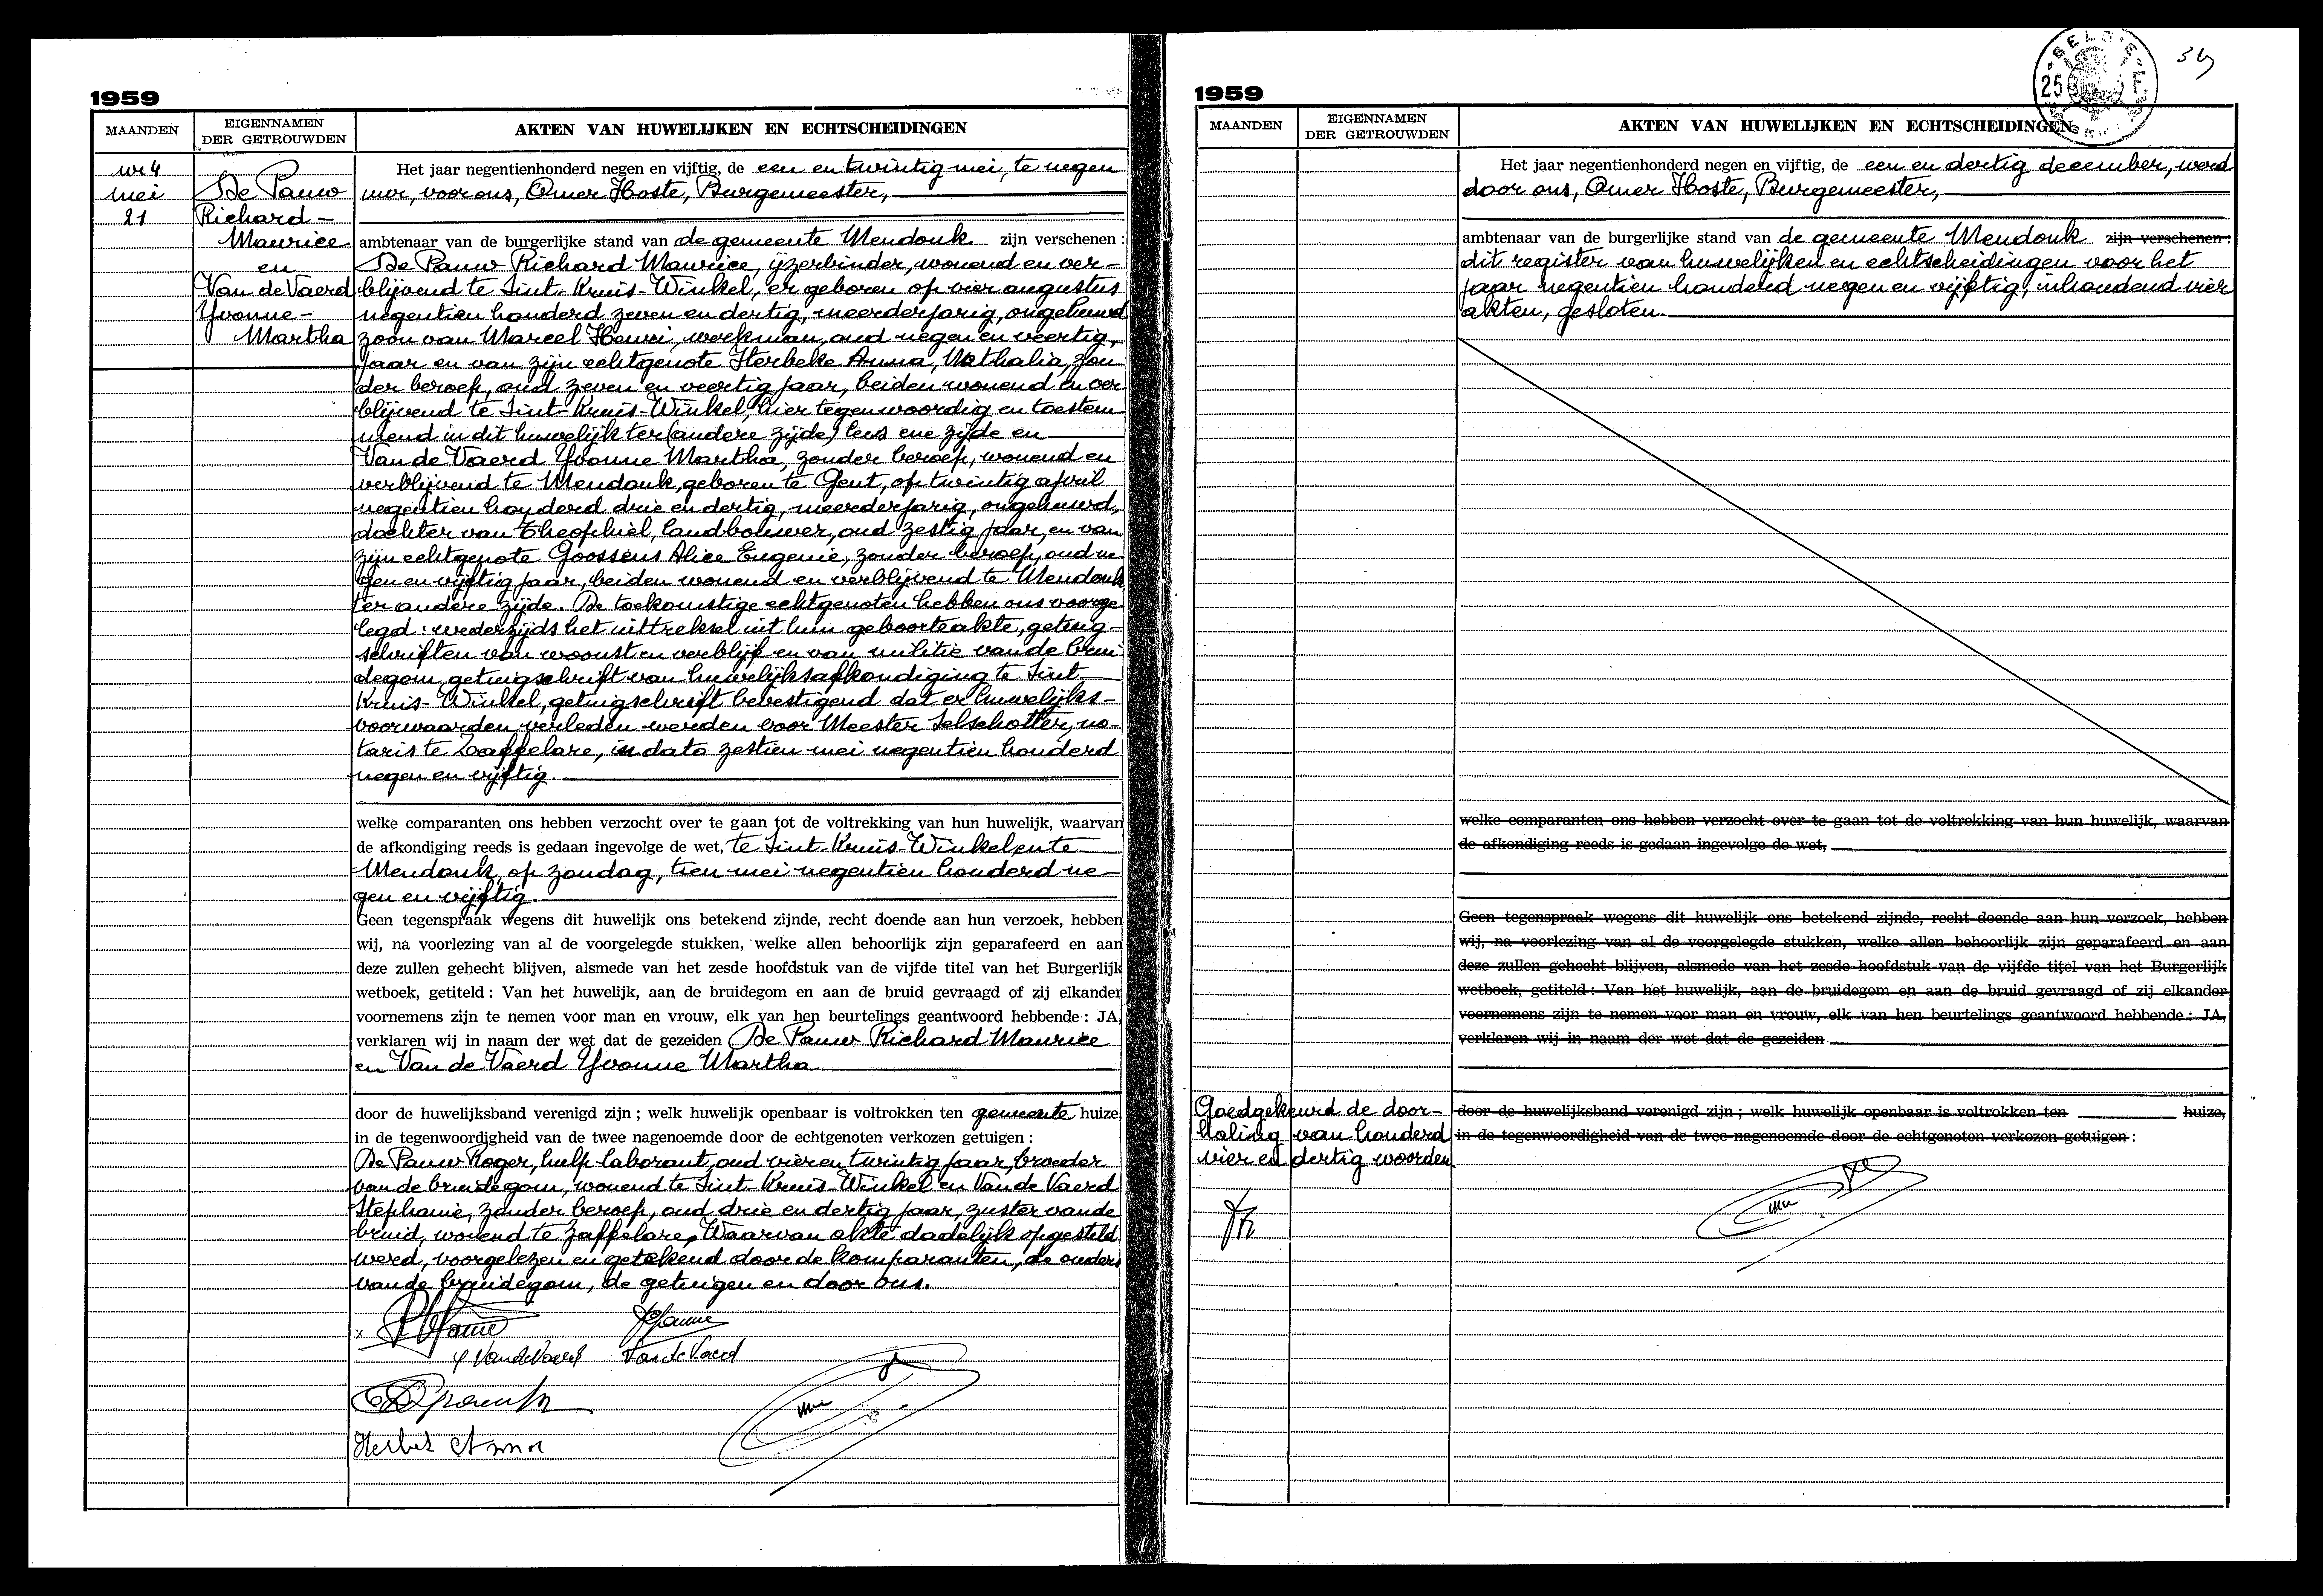 1959
MAANDEN
EIGENNAMEN
DER GETROUWDEN
AKTEN VAN HUWELIJKEN EN ECHTSCHEIDINGEN
nr 4
mei
21
De Pauw
Richard-
Maurice
en
Van de Vaerd
Yvonne-
Martha
Het jaar negentienhonderd negen en vijftig, de een en twintig mei, te negen
uur, voor ons, Omer Hoste, Burgemeester,
ambtenaar van de burgerlijke stand van de gemeente Mendonk zijn verschenen:
De Pauw Richard Maurice, ijzerbinder, wonend en ver-
blijvend te Sint-Kruis-Winkel, er geboren op vier augustus
negentien honderd zeven en dertig, meerderjarig, ongehuwd
zoon van Marcel Henri, werkman, oud negen en veertig,
jaar en van zijn echtgenote Herbeke Anna, Nathalia, zon-
der beroep, oud zeven en veertig jaar, beiden wonend en ver
blijvend te Sint-Kruis-Winkel, hier tegenwoordig en toestem-
mend in dit huwelijk ter (andere zijde) lees ene zijde en
Van de Vaerd Yvonne Martha, zonder beroep, wonend en
verblijvend te Mendonk, geboren te Gent, op twintig april
negentien honderd drie en dertig, meerderjarig, ongehuwd,
dochter van Theophiel, landbouwer, oud zestig jaar, en van
zijn echtgenote Goossens Alice Eugenie, zonder beroep, oud ne-
gen en vijftig jaar, beiden wonend en verblijvend te Mendonk
ter andere zijde. De toekomstige echtgenoten hebben ons voorge-
legd: wederzijds het uittreksel uit hun geboorteakte, getuig-
schriften van woonst en verblijf en van militie van de brui-
degom, getuigschrift van huwelijksafkondiging te Sint-
Kruis-Winkel, getuigschrift bevestigend dat er huwelijks-
voorwaarden verleden werden voor Meester Selschotter, no-
taris te Zaffelare, in dato zestien mei negentien honderd
negen en vijftig.
welke comparanten ons hebben verzocht over te gaan tot de voltrekking van hun huwelijk, waarvan
de afkondiging reeds is gedaan ingevolge de wet, te Sint-Kruis-Winkel en te
Mendonk, op zondag, tien mei negentien honderd ne-
gen en vijftig.
Geen tegenspraak wegens dit huwelijk ons betekend zijnde, recht doende aan hun verzoek, hebben
wij, na voorlezing van al de voorgelegde stukken, welke allen behoorlijk zijn geparafeerd en aan
deze zullen gehecht blijven, alsmede van het zesde hoofdstuk van de vijfde titel van het Burgerlijk
wetboek, getiteld: Van het huwelijk, aan de bruidegom en aan de bruid gevraagd of zij elkander
voornemens zijn te nemen voor man en vrouw, elk van hen beurtelings geantwoord hebbende: JA,
verklaren wij in naam der wet dat de gezeiden De Pauw Richard Maurice
en Van de Vaerd Yvonne Martha
door de huwelijksband verenigd zijn; welk huwelijk openbaar is voltrokken ten gemeente huize,
in de tegenwoordigheid van de twee nagenoemde door de echtgenoten verkozen getuigen:
De Pauw Roger, hulp laborant, oud vier en twintig jaar, broeder
van de bruidegom, wonend te Sint-Kruis-Winkel en Van de Vaerd
Stephanie, zonder beroep, oud drie en dertig jaar, zuster van de
bruid, wonend te Zaffelare. Waarvan akte dadelijk opgesteld
werd, voorgelezen en getekend door de komparanten, de ouders
van de bruidegom, de getuigen en door ons.
Y VandeVaerd Van de Vaerd
Herbek Anna
1959
MAANDEN
EIGENNAMEN
DER GETROUWDEN
AKTEN VAN HUWELIJKEN EN ECHTSCHEIDINGEN
BELGIE
25 F
Het jaar negentienhonderd negen en vijftig, de een en dertig december, werd
door ons, Omer Hoste, Burgemeester,
ambtenaar van de burgerlijke stand van de gemeente Mendonk zijn verschenen:
dit register van huwelijken en echtscheidingen voor het
jaar negentien honderd negen en vijftig, inhoudend vier
akten, gesloten.
welke comparanten ons hebben verzocht over te gaan tot de voltrekking van hun huwelijk, waarvan
de afkondiging reeds is gedaan ingevolge de wet,
Geen tegenspraak wegens dit huwelijk ons betekend zijnde, recht doende aan hun verzoek, hebben
wij, na voorlezing van al de voorgelegde stukken, welke allen behoorlijk zijn geparafeerd en aan
deze zullen gehecht blijven, alsmede van het zesde hoofdstuk van de vijfde titel van het Burgerlijk
wetboek, getiteld: Van het huwelijk, aan de bruidegom en aan de bruid gevraagd of zij elkander
voornemens zijn te nemen voor man en vrouw, elk van hen beurtelings geantwoord hebbende: JA,
verklaren wij in naam der wet dat de gezeiden
Goedgekeurd de door-
haling van honderd
vier en dertig woorden
door de huwelijksband verenigd zijn; welk huwelijk openbaar is voltrokken ten huize,
in de tegenwoordigheid van de twee nagenoemde door de echtgenoten verkozen getuigen: